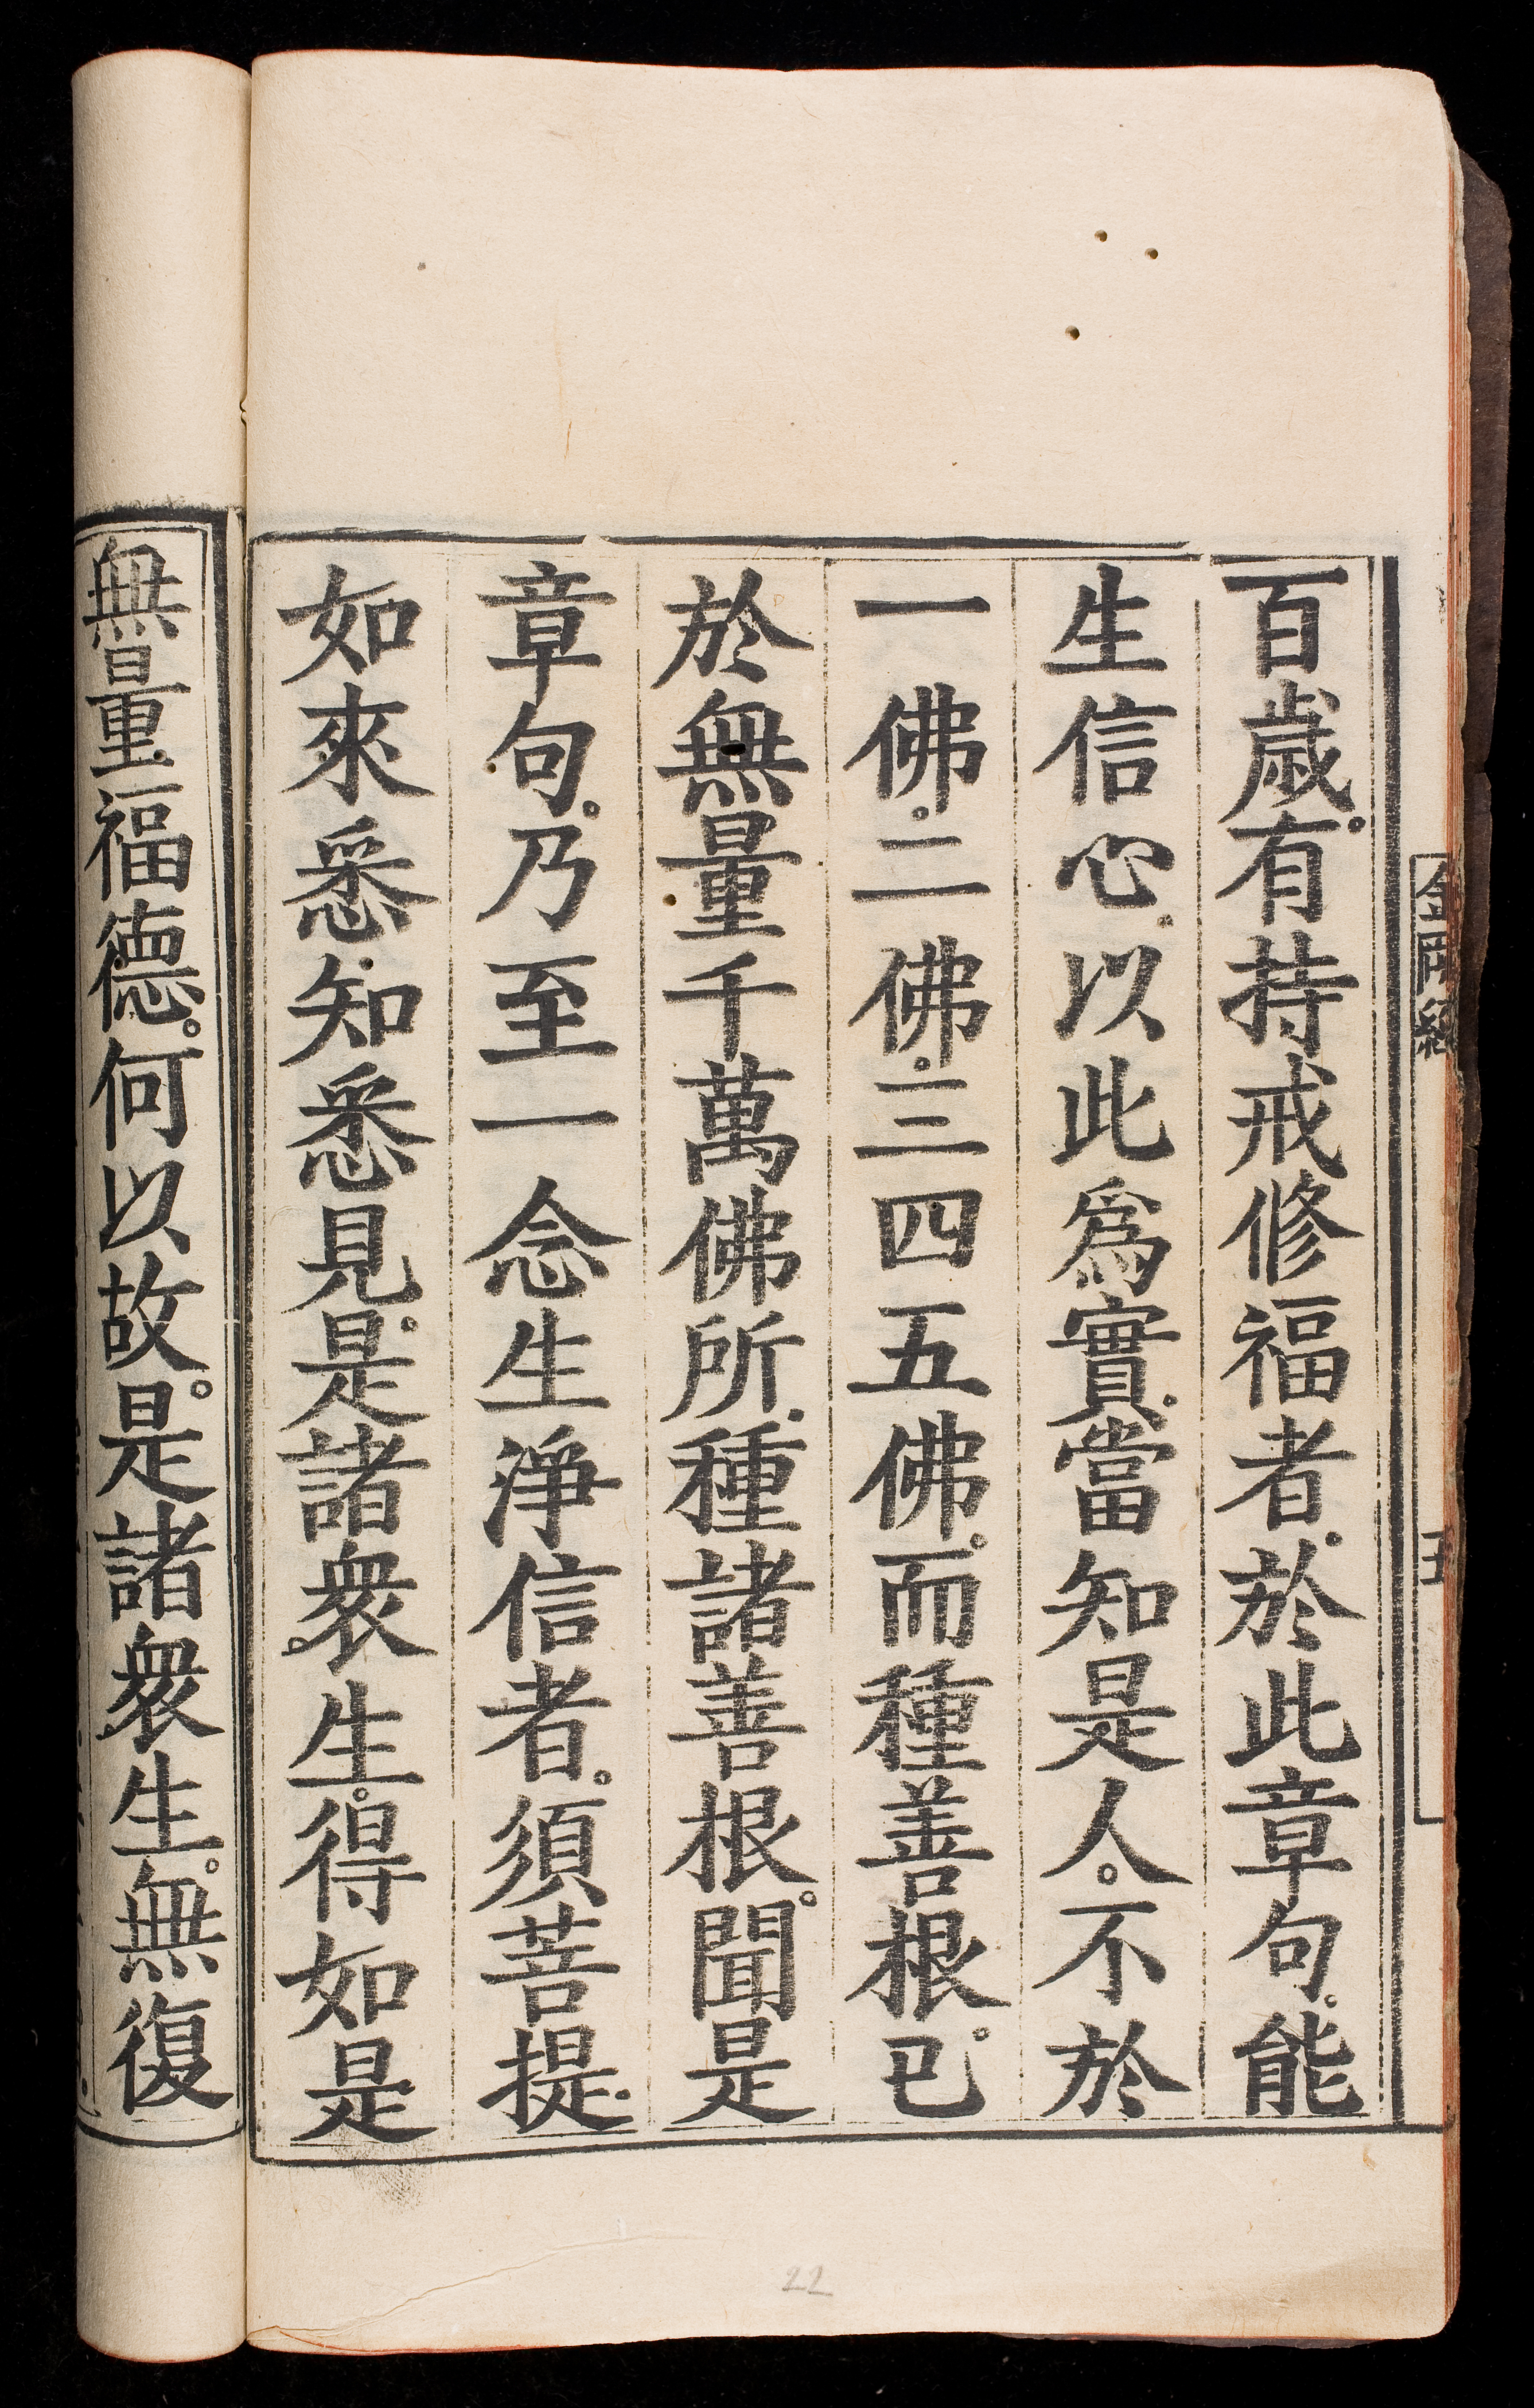 百歲。有持戒修福者。於此章句。能
生信心。以此爲實。當知是人。不於
一佛。二佛。三四五佛。而種善根。已
於無量千萬佛所。種諸善根。聞是
章句。乃至一念生淨信者。須菩提。
如來悉知悉見。是諸衆生。得如是
無量福德。何以故。是諸衆生。無復
22